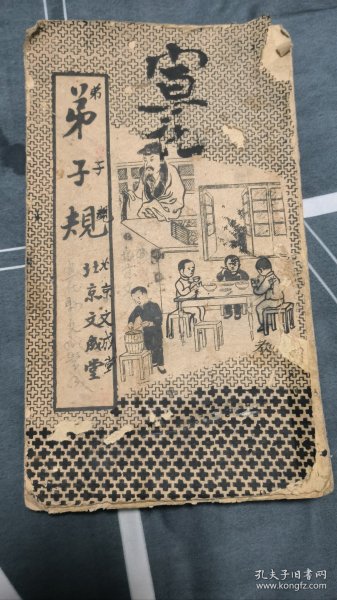 宣花
弟子規
弟子規
北京文成堂
北京文成堂
教
孔夫子旧书网
www.kongfz.com